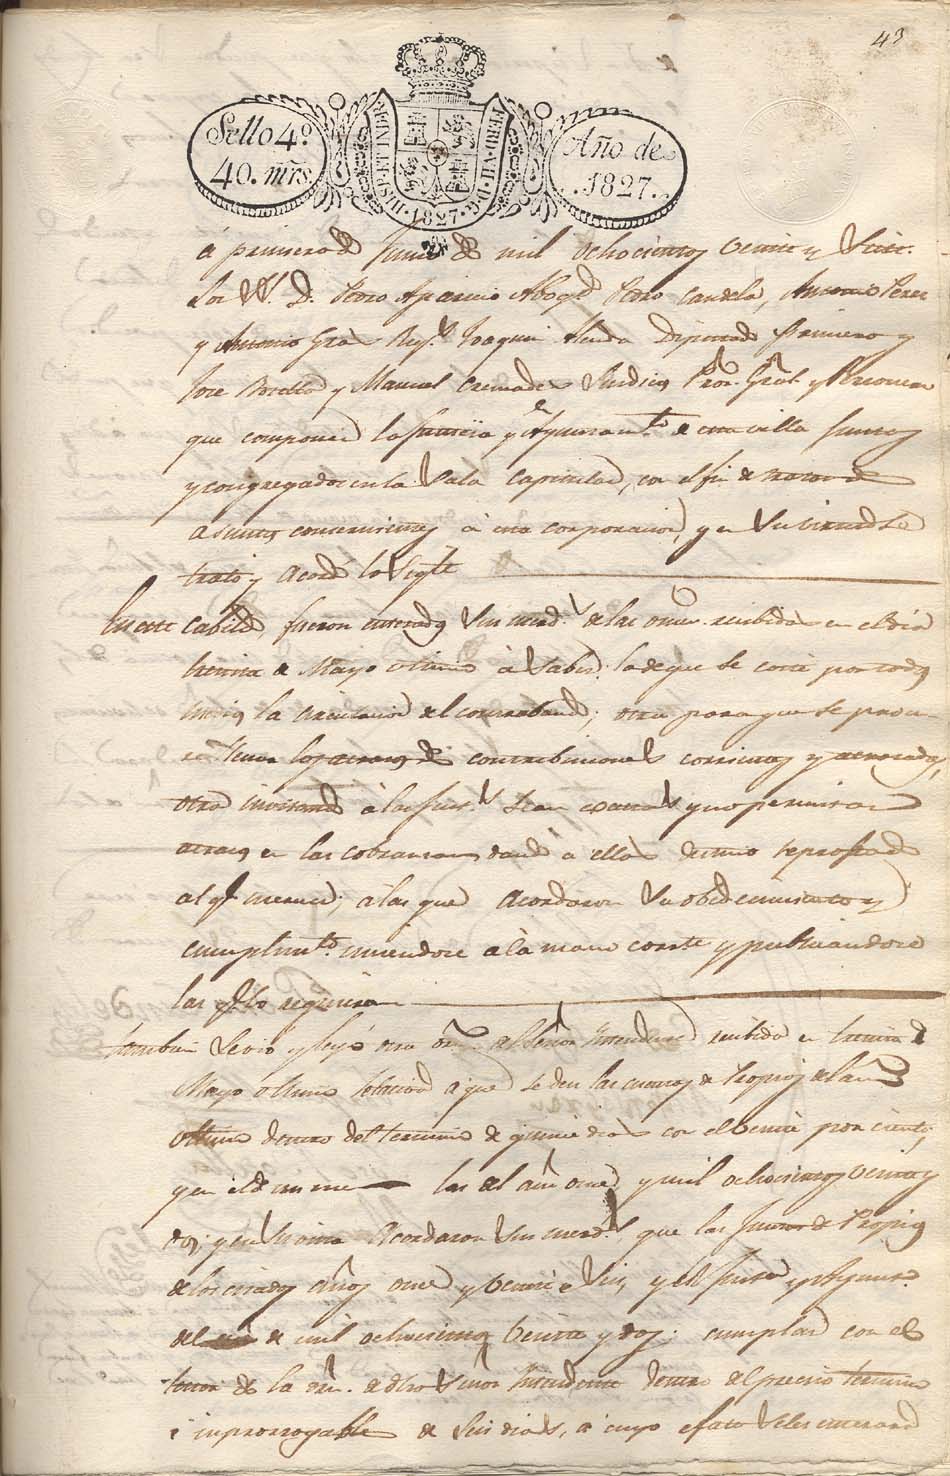 43
Sello 4º
40. mrs.
HISP. ET INDIAR.
FERD. VII. D. G.
1827
Año de
1827.
á primero de Junio de mil ochocientos veinte y siete.
Los SS. D. Pedro Aparicio Abogdo Pedro Candela, Antonio Perez
y Antonio Gras Regs. Joaquin Diputado Primero y
Jose y Manuel Cremades Sindicos Pror. Gral. y Personero
que componen la Justicia y Ayuntamto. de esta villa Juntos
y congregados en la Sala Capitular, con el fin de tratar
asuntos concernientes á esta corporacion, y en su virtud se
trató y acordó lo Sigte
En este Cabildo fueron enterados Sus merds. de las ordenes recibidas en el dia
treinta de Mayo ultimo á Saber: la de que se corte por todos
medios la circulacion del contrabando; otra para que se
los atrasos de contribuciones corrientes y atrasadas,
otra á las Just.s Sean y no permitan
atrasos en las cobranzas dando á ellas
al qe. ; á las que acordaron Su obedecimiento y
cumplimto. uniendose á la mano corrte y publicandose
las qe. lo requieran
Tambien Se vió y leyó otra orn. del Señor Intendente recibida en treinta de
Mayo ultimo relativa á que se den las cuentas de Propios del año
ultimo dentro del termino de quince dias con el veinte por ciento,
y en el de un mes las del año once y mil ochocientos veinte y
dos; y en su vista Acordaron Sus merds. que las Juntas de Propios
de los citados años once y veinte y Seis, y el Justa y Ayunto.
del de mil ochocientos veinte y dos; cumplan con el
tenor de la orn. de dho Señor Intendente dentro del preciso termino
é inprorrogable de Seis dias, á cuyo efecto Seles enterará